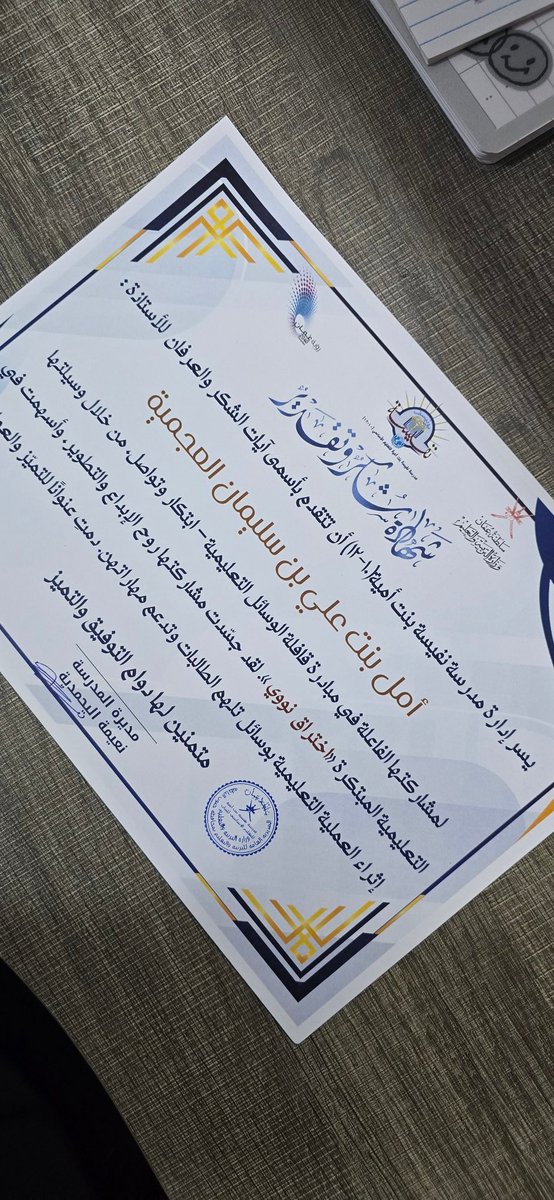 سلطنة عمان
وزارة التربية والتعليم
نفيسة
شهادة شكر وتقدير
يسر إدارة مدرسة نفيسة بنت أمية(١-١٢) أن تتقدم بأسمى آيات الشكر والعرفان للأستاذة :
أمل بنت علي بن سليمان العجمية
لمشاركتها الفاعلة في مبادرة قافلة الوسائل التعليمية - ابتكار وتواصل، من خلال وسيلتها
التعليمية المبتكرة «اختراق نووي »، لقد جسّدت مشاركتها روح الإبداع والتطوير، وأسهمت في
إثراء العملية التعليمية بوسائل تلهم الطالبات وتدعم مهاراتهن، دمت عنوانًا للتميّز
متمنين لها دوام التوفيق والتميز
مديرة المدرسة
نعيمة اليحمدية